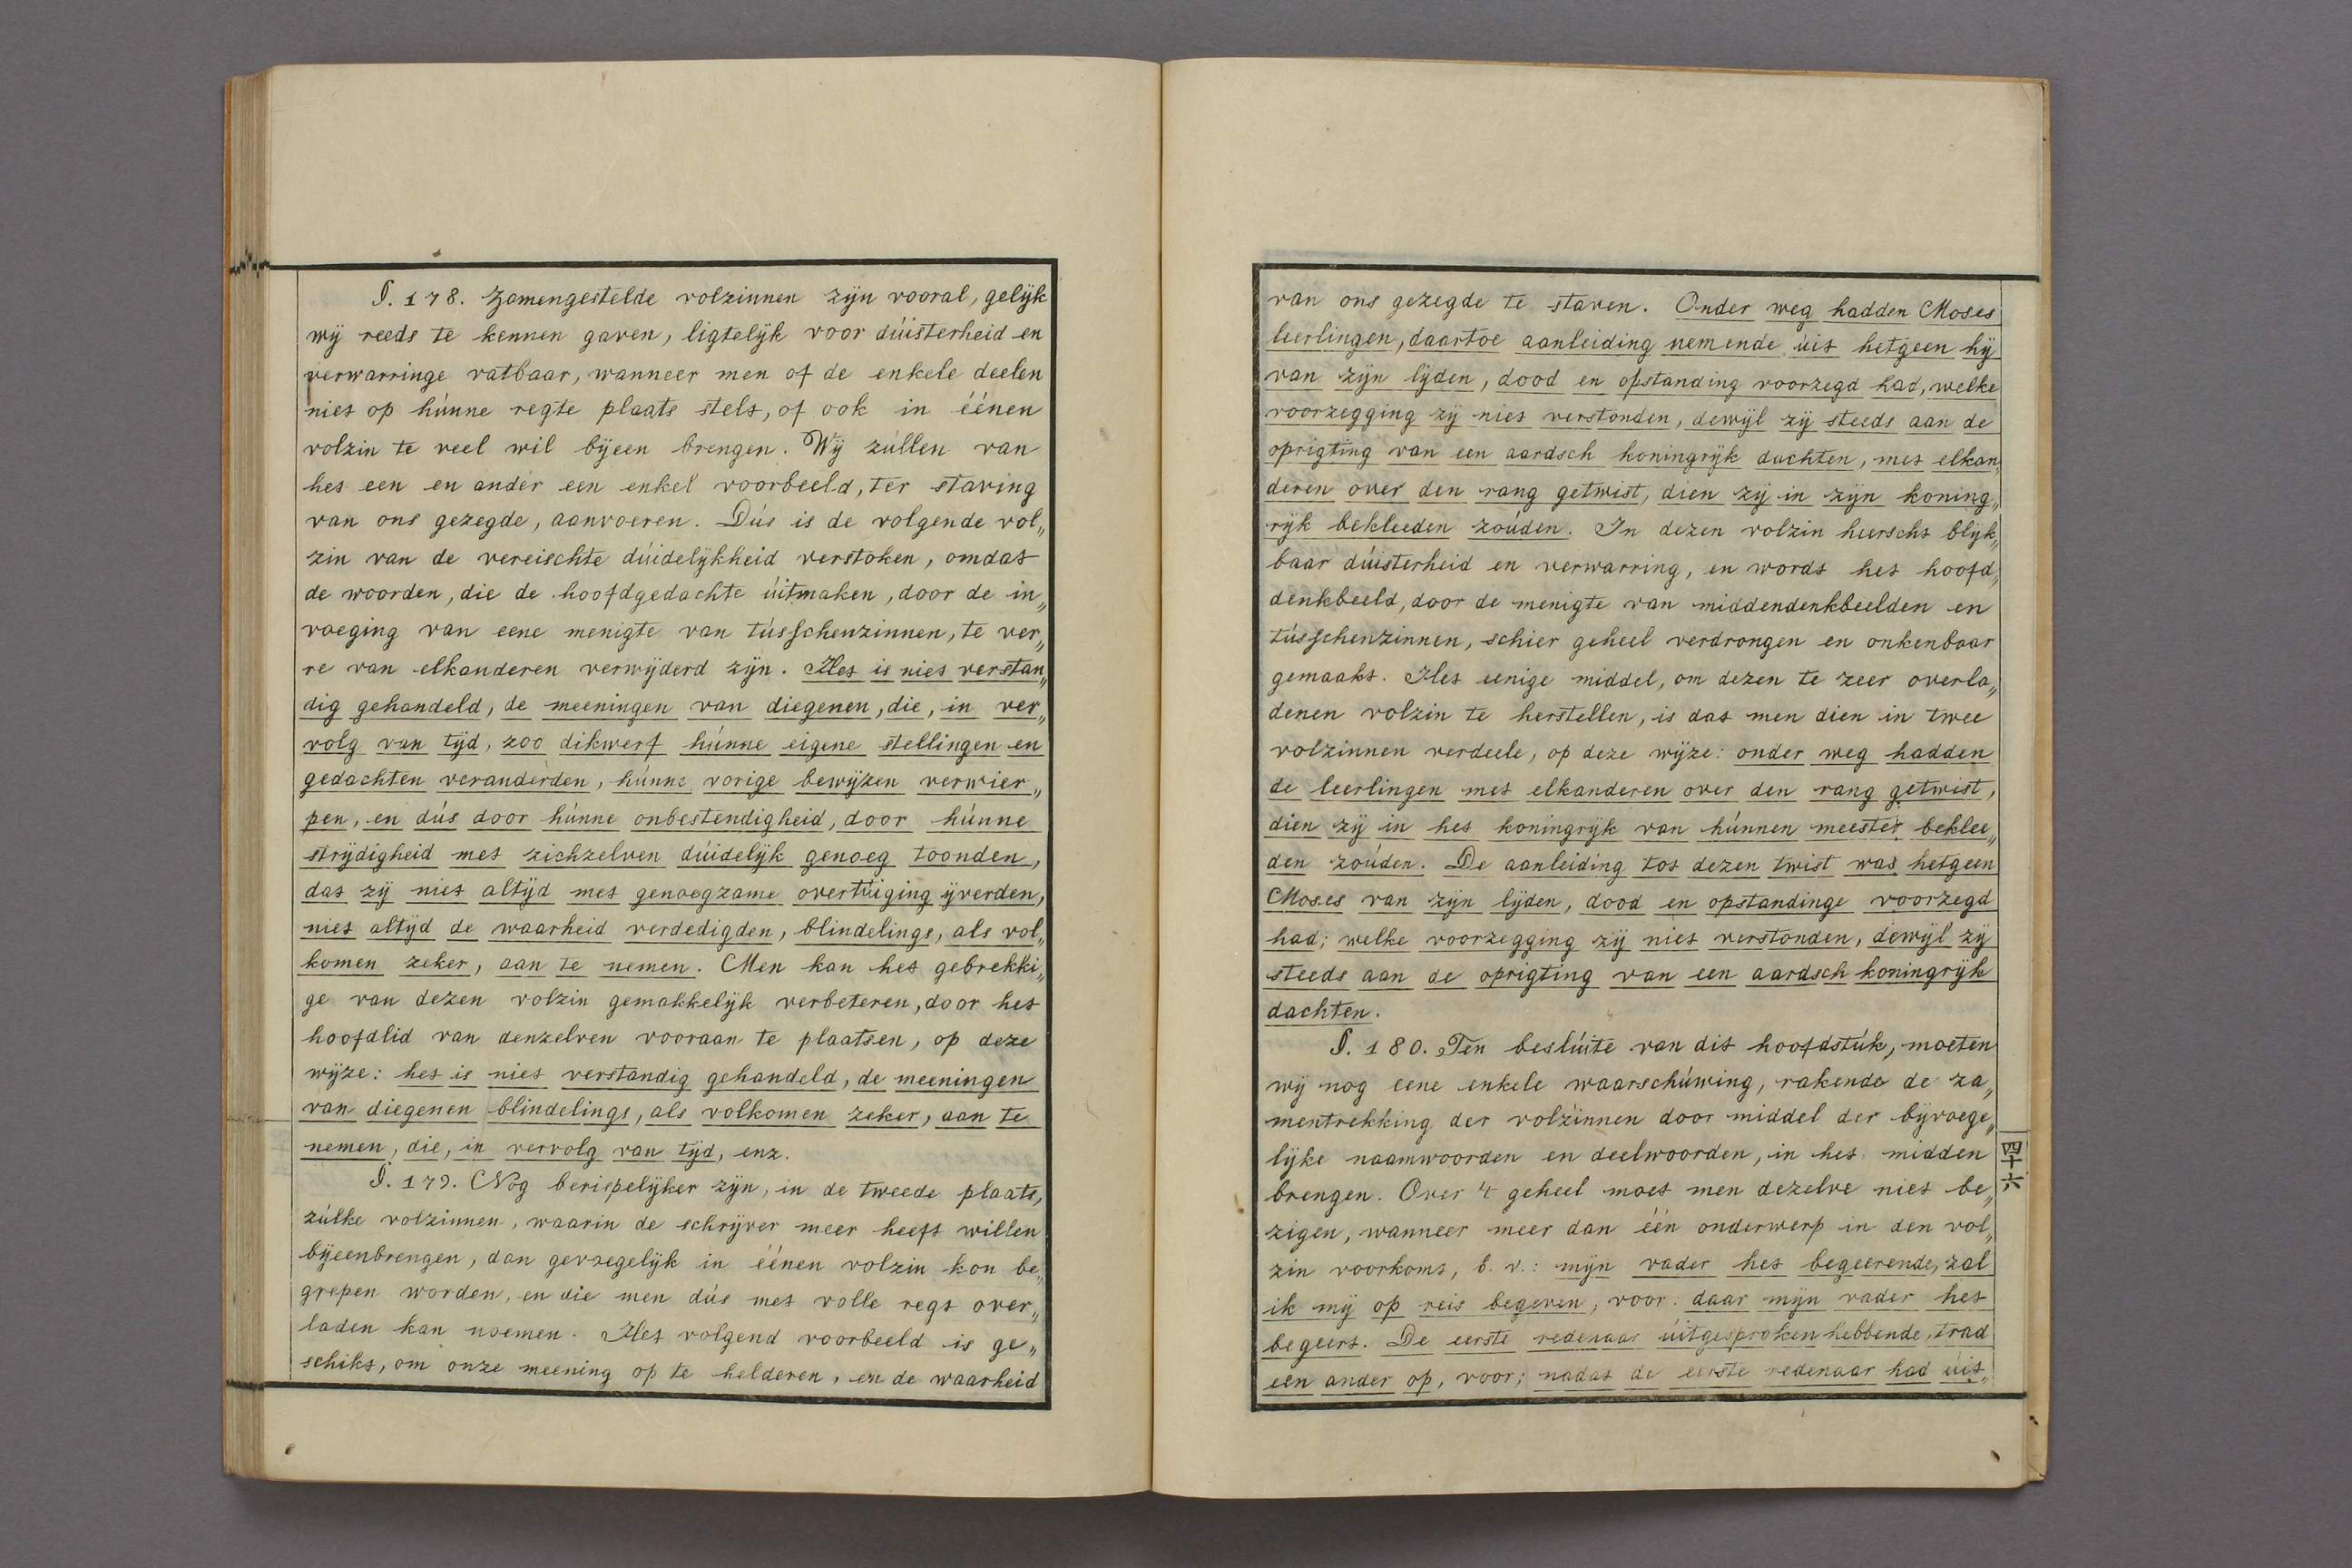 §. 178. Zamengestelde volzinnen zijn vooral, gelijk
wij reeds te kennen gaven, ligtelijk voor dúisterheid en
verwarringe vatbaar, wanneer men of de enkele deelen
niet op húnne regte plaats stelt, of ook in éénen
volzin te veel wil bijeen brengen. Wij zúllen van
het een en ander een enkel voorbeeld, ter staving
van ons gezegde, aanvoeren. Dús is de volgende vol„
zin van de vereischte dúidelijkheid verstoken, omdat
de woorden, die de hoofdgedachte úitmaken, door de in„
voeging van eene menigte van tússchenzinnen, te ver„
re van elkanderen verwijderd zijn. Het is niet verstan„
dig gehandeld, de meeningen van diegenen, die, in ver„
volg van tijd, zoo dikwerf húnne eigene stellingen en
gedachten veranderden, húnne vorige bewijzen verwier„
pen, en dús door húnne onbestendigheid, door húnne
strijdigheid met zichzelven dúidelijk genoeg toonden,
dat zij niet altijd met genoegzame overtúiging ijverden,
niet altijd de waarheid verdedigden, blindelings, als vol„
komen zeker, aan te nemen. Men kan het gebrekki„
ge van dezen volzin gemakkelijk verbeteren, door het
hoofdlid van denzelven vooraan te plaatsen, op deze
wijze: het is niet verstandig gehandeld, de meeningen
van diegenen blindelings, als volkomen zeker, aan te
nemen, die, in vervolg van tijd, enz.
§. 179. Nog berispelijker zijn, in de tweede plaats,
zúlke volzinnen, waarin de schrijver meer heeft willen
bijeenbrengen, dan gevoegelijk in éénen volzin kon be„
grepen worden, en die men dús met volle regt over„
laden kan noemen. Het volgend voorbeeld is ge„
schikt, om onze meening op te helderen, en de waarheid
van ons gezegde te staven. Onder weg hadden Moses
leerlingen, daartoe aanleiding nemende úit hetgeen hij
van zijn lijden, dood en opstanding voorzegd had, welke
voorzegging zij niet verstonden, dewijl zij steeds aan de
oprigting van een aardsch koningrijk dachten, met elkan„
deren over den rang getwist, dien zij in zijn koning„
rijk bekleeden zoúden. In dezen volzin heerscht blijk„
baar dúisterheid en verwarring, en wordt het hoofd„
denkbeeld, door de menigte van middendenkbeelden en
tússchenzinnen, schier geheel verdrongen en onkenbaar
gemaakt. Het eenige middel, om dezen te zeer overla„
denen volzin te herstellen, is dat men dien in twee
volzinnen verdeele, op deze wijze: onder weg hadden
de leerlingen met elkanderen over den rang getwist,
dien zij in het koningrijk van húnnen meester beklee„
den zoúden. De aanleiding tot dezen twist was hetgeen
Moses van zijn lijden, dood en opstandinge voorzegd
had; welke voorzegging zij niet verstonden, dewijl zij
steeds aan de oprigting van een aardsch koningrijk
dachten.
§. 180. Ten beslúite van dit hoofdstúk, moeten
wij nog eene enkele waarschúwing, rakende de za„
mentrekking der volzinnen door middel der bijvoege„
lijke naamwoorden en deelwoorden, in het midden
brengen. Over 't geheel moet men dezelve niet be„
zigen, wanneer meer dan één onderwerp in den vol„
zin voorkomt, b. v.: mijn vader het begeerende, zal
ik mij op reis begeven, voor: daar mijn vader het
begeert. De eerste redenaar úitgesproken hebbende, trad
een ander op, voor; nadat de eerste redenaar had úit„
四十六